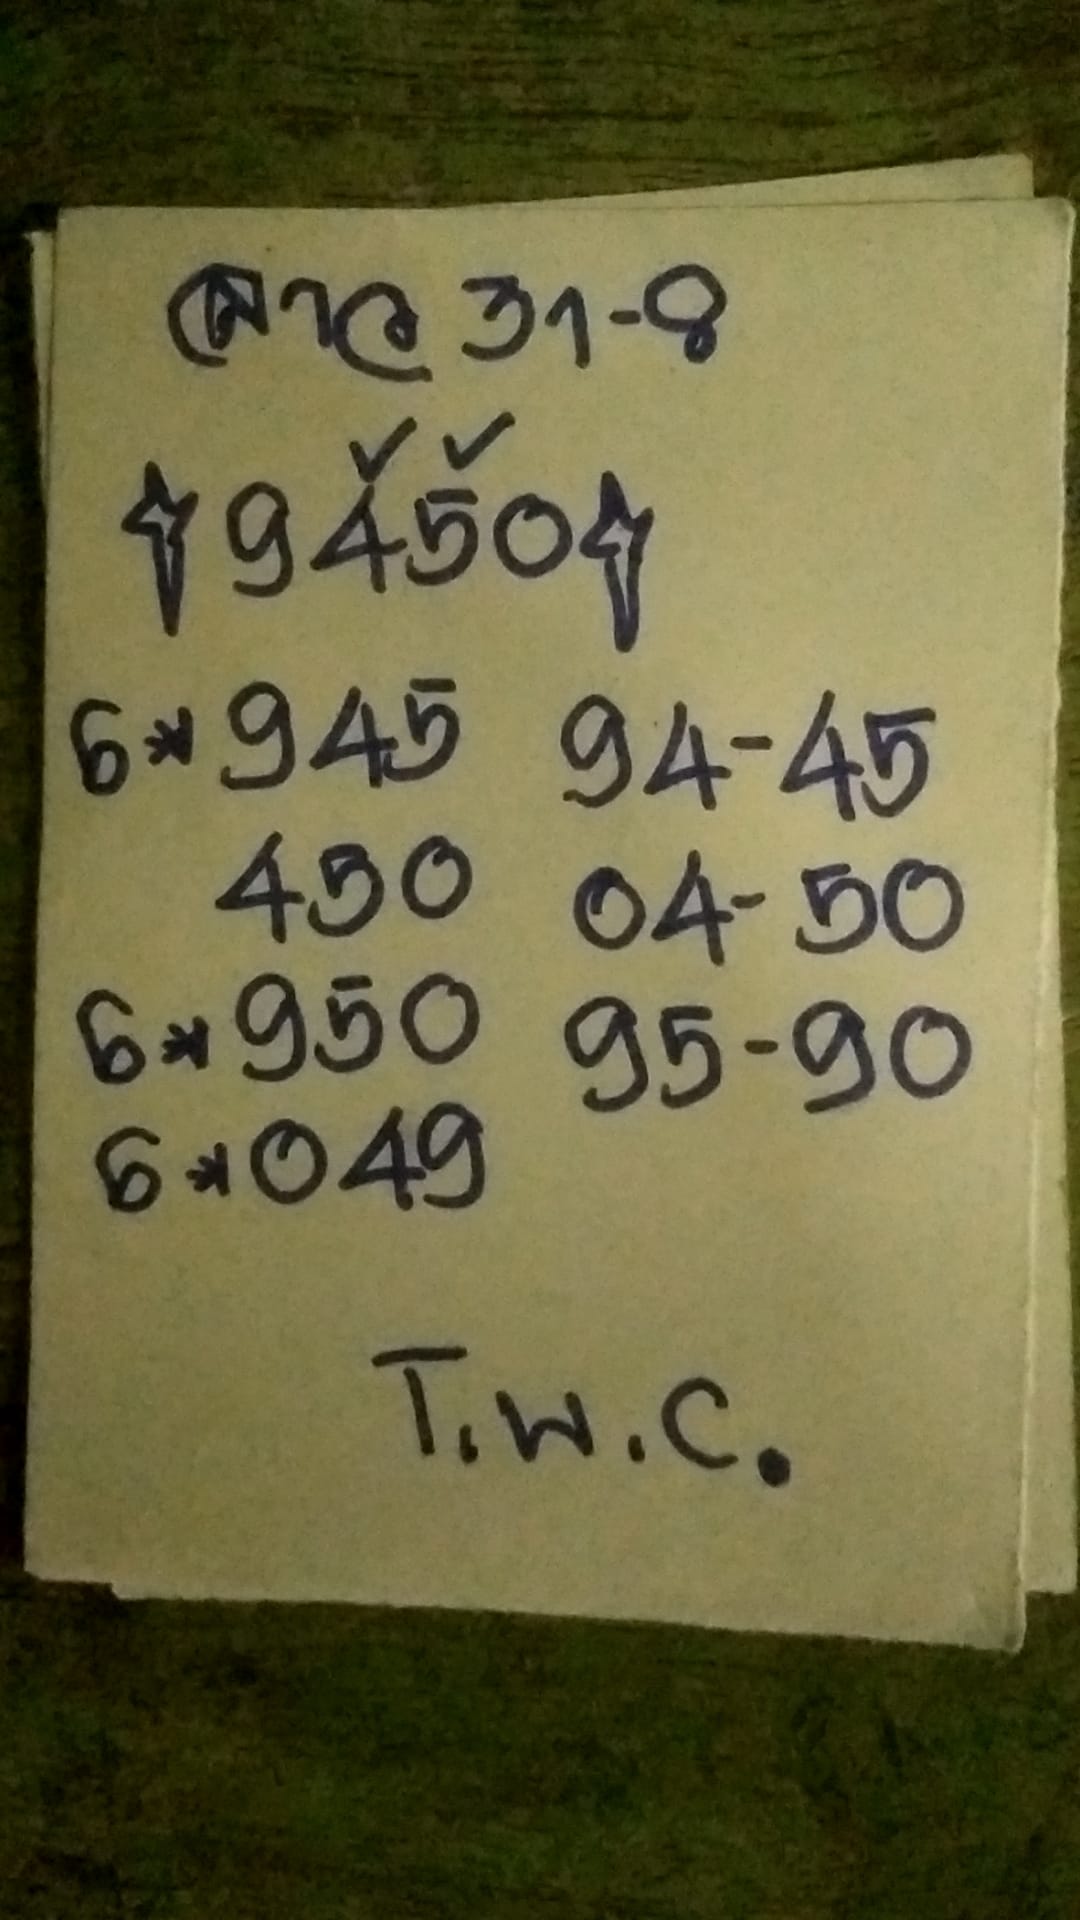 ลาว 31-8
✓ ✓
9450
6*945 94-45
450 04-50
6*950 95-90
6*049
T.W.C.